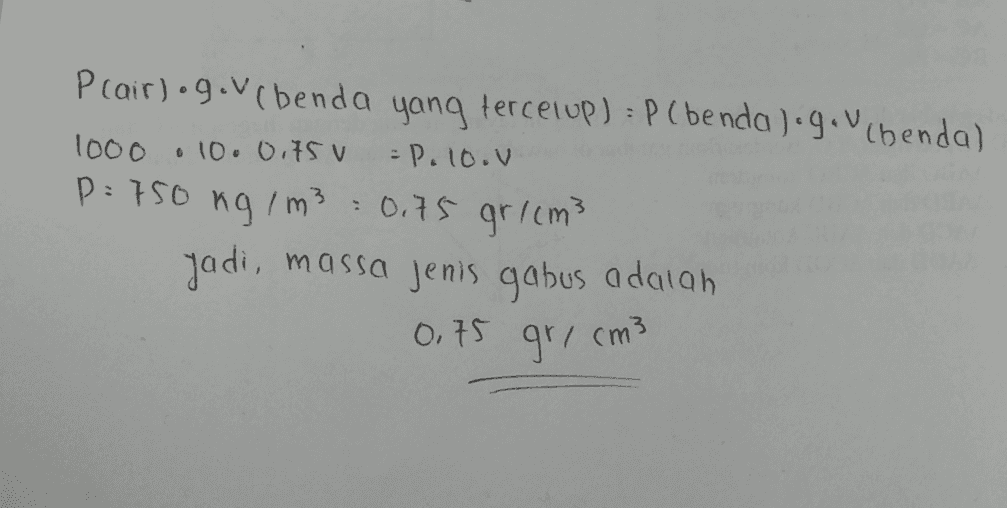 P(air).g.V(benda yang tercelup) = P(benda).g.V(benda)
1000 . 10. 0,75 V = P.10.V
P = 750 kg/m³ = 0,75 gr/cm³
Jadi, massa jenis gabus adalah
0,75 gr/cm³